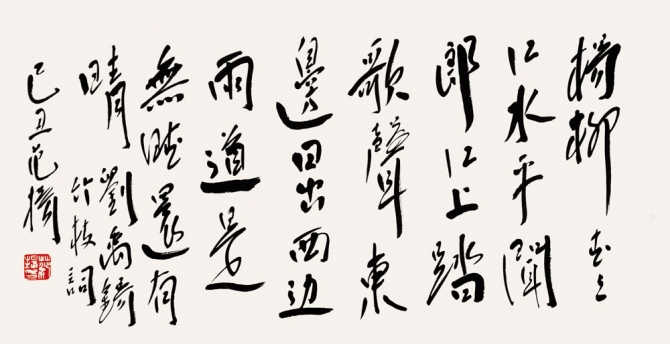 楊柳青〻
江水平聞
郎江上踏
歌聲東
邊日出西边
雨道是
無晴還有
晴 劉禹錫
竹枝詞
己丑范揚